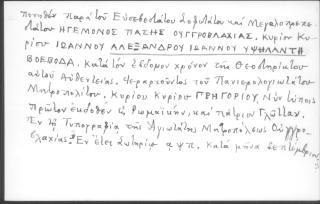 ποιηθὲν παρὰ τοῦ Εὐσεβεστάτου Σοφωτάτου καὶ Μεγαλοπρεπε-
στάτου ΗΓΕΜΟΝΟΣ ΠΑΣΗΣ ΟΥΓΓΡΟΒΛΑΧΙΑΣ. Κυρίου Κυ-
ρίου ΙΩΑΝΝΟΥ ΑΛΕΞΑΝΔΡΟΥ ΙΩΑΝΝΟΥ ΥΨΗΛΑΝΤΗ
ΒΟΕΒΟΔΑ. Κατὰ τὸν ἕβδομον χρόνον τῆς Θεοστηρίκτου
αὐτοῦ Αὐθεντείας. Ἱεραρχοῦντος τοῦ Πανιερολογιωτάτου
Μητροπολίτου. Κυρίου Κυρίου ΓΡΗΓΟΡΙΟΥ. Νῦν τύποις
πρῶτον ἐκδοθὲν τῇ Ρωμαϊκῇ, καὶ πάτριον Γλῶτταν.
Ἐν τῇ Τυπογραφίᾳ τῆς Ἁγιωτάτης Μητροπόλεως Οὐγγρο-
βλαχίας. Ἐν ἔτει Σωτηρίῳ αψπ. Κατὰ μῆνα Σεπτέμβριον.